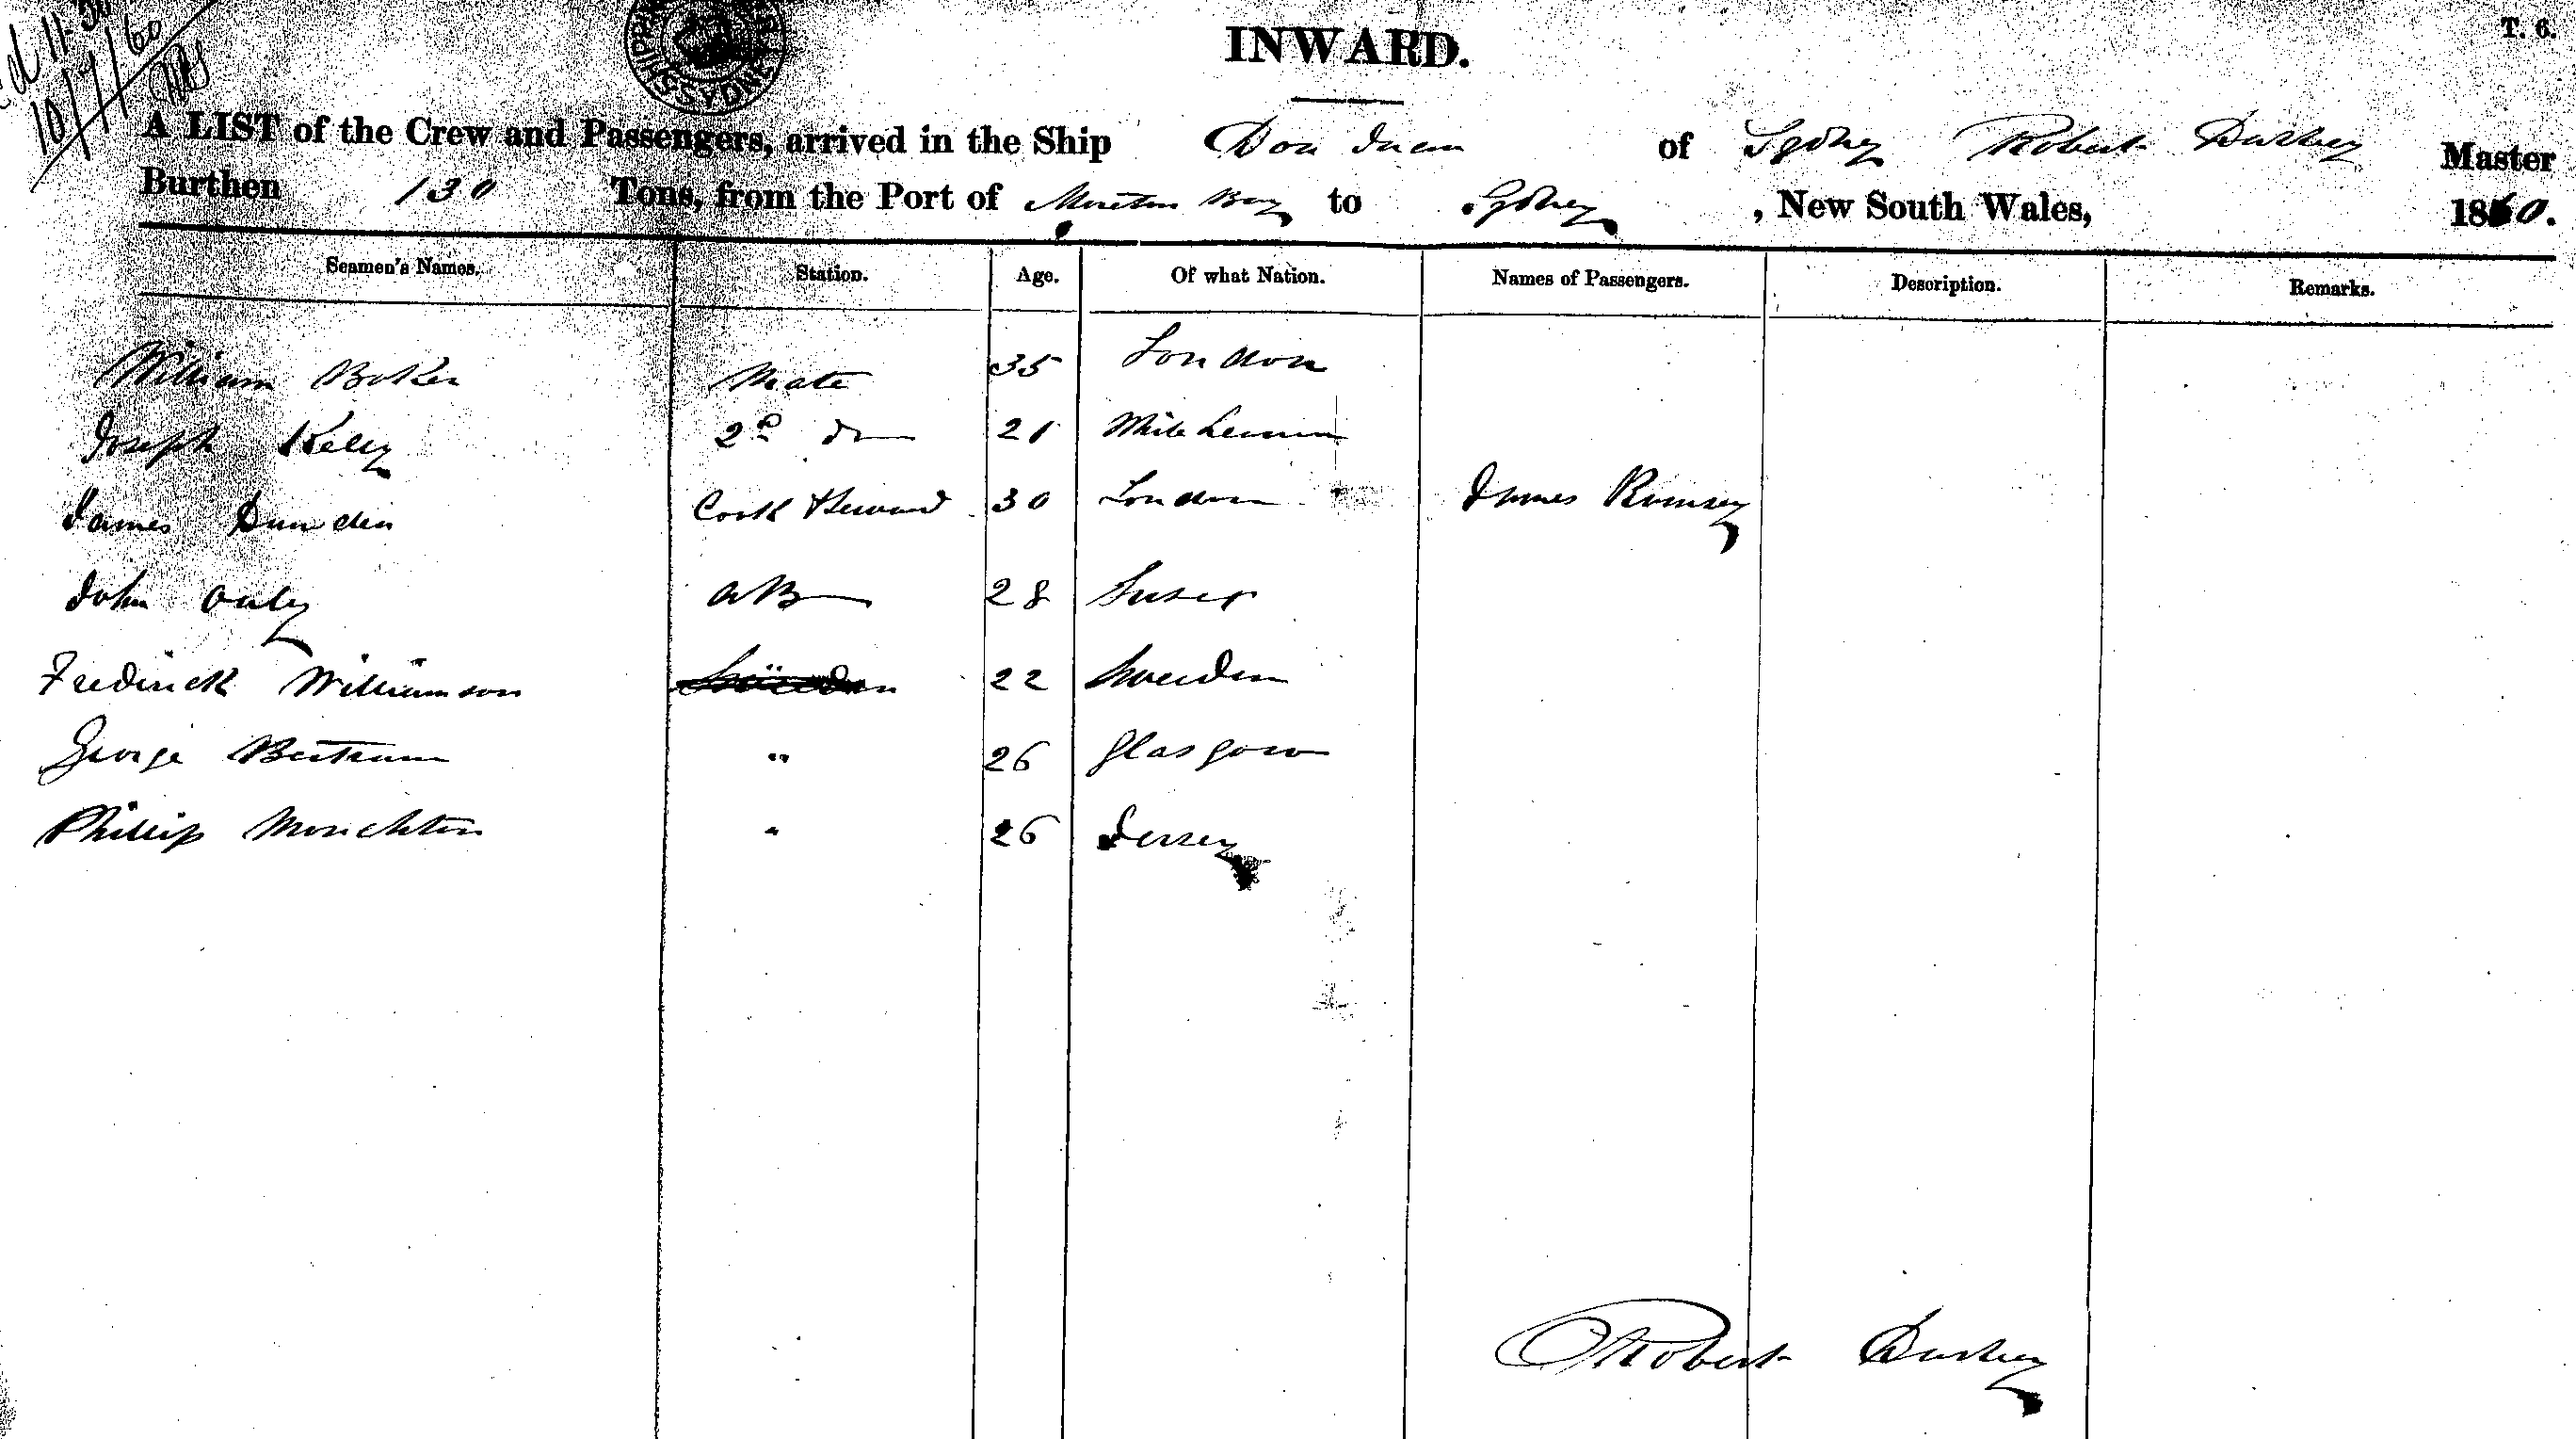 11.30
10/7/60
INWARD.
T. 6.
A LIST of the Crew and Passengers, arrived in the Ship Don Juan of Sydney Robert Master
Burthen 130 Tons, from the Port of Moreton Bay to Sydney, New South Wales, 1860.
Seamen's Names. Station. Age. Of what Nation. Names of Passengers. Description. Remarks.
William Baker Mate 35 London
Joseph Kelly 2d do 21 White
James 30 London James Rumsey
Cook Steward
John AB 28 Sussex
Fredrick Williamson 22 Sweeden
George Bertram " 26 Glasgow
Phillip Monckton " 26 Jersey
Robert